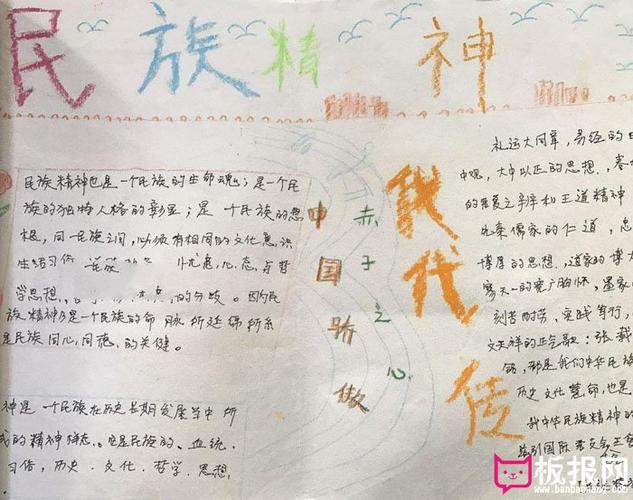 民族精神
民族精神也是一个民族的生命魂；是一个民
族的独特人格的彰显；是一个民族的思
想，同一民族之间，必须有相同的文化意识
生活习俗
学思想，的分歧。因为民
族精神乃是一个民族的命脉所延绵所系
是民族同心，同德，的关健。
神是一个民族在历史长期发展当中所
成的精神样态。也是民族的、血统、
习俗，历史、文化、哲学、思想，
中国骄傲
赤子之心
我代传
礼运大同章，易经的日
中观，大中以正的思想，春
的王道精神
先秦儒家的仁道，忠
博厚的思想，道家的博大
寥天一的宽广胸怀，墨家
刻苦耐劳，实践笃行，
文天祥的正气歌：张载
铭，都是我们中华民族
历史文化慧命，也是
我中华民族精神的
板报网
www.banbaowang.com